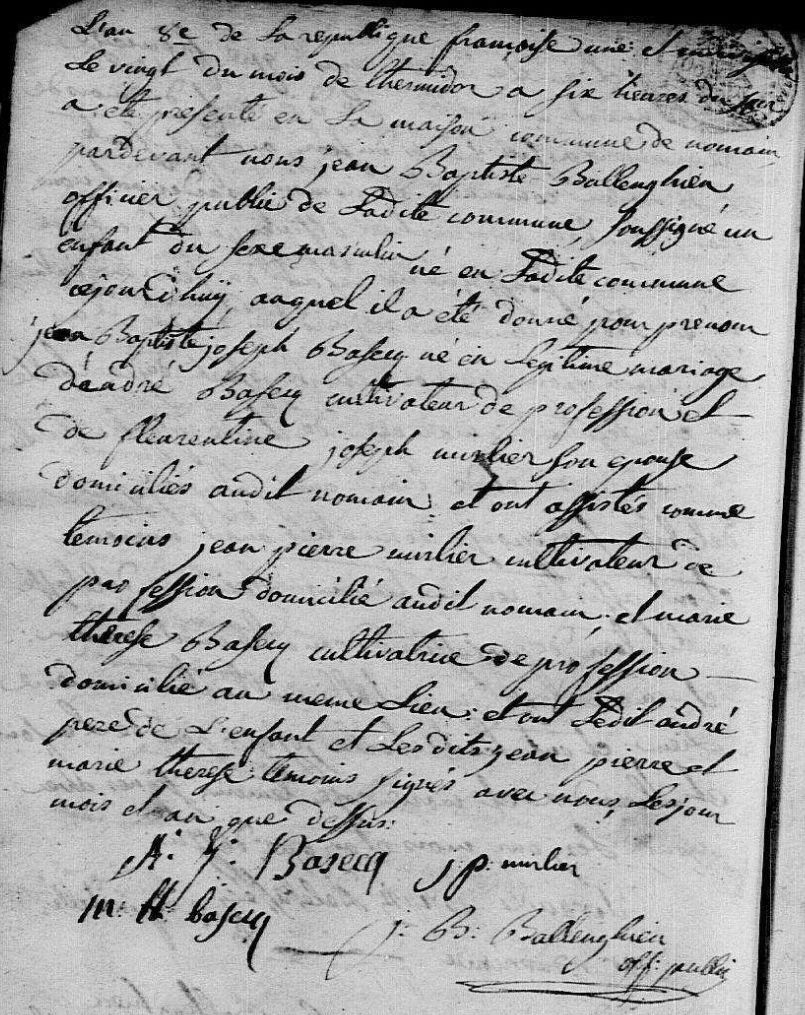 L'an 8e de La republique françoise une et indivisible
Le vingt du mois de thermidor a six heures du soir
a été présenté en La maison commune de nomain
pardevant nous jean Baptiste Ballenghien
officier public de Ladite commune, soussigné un
enfant du sexe masculin né en Ladite commune
cejourd'huy, auquel il a été donné pour prenom
jean Baptiste joseph Basecq né en Legitime mariage
d'andré Basecq cultivateur de profession et
de fleurentine joseph mirlier son epouse
domiciliés audit nomain et ont assistés comme
temoins jean pierre mirlier cultivateur de
profession domicilié audit nomain, et marie
therese Basecq cultivatrice de profession
domicilié au meme Lieu: et ont Ledit andré
pere de L'enfant et Lesdits jean pierre et
marie therese temoins signés avec nous, Les jour
mois et an que dessus:
A: j: Basecq j p: mirlier
m: th: basecq
j: B: Ballenghien
off: public